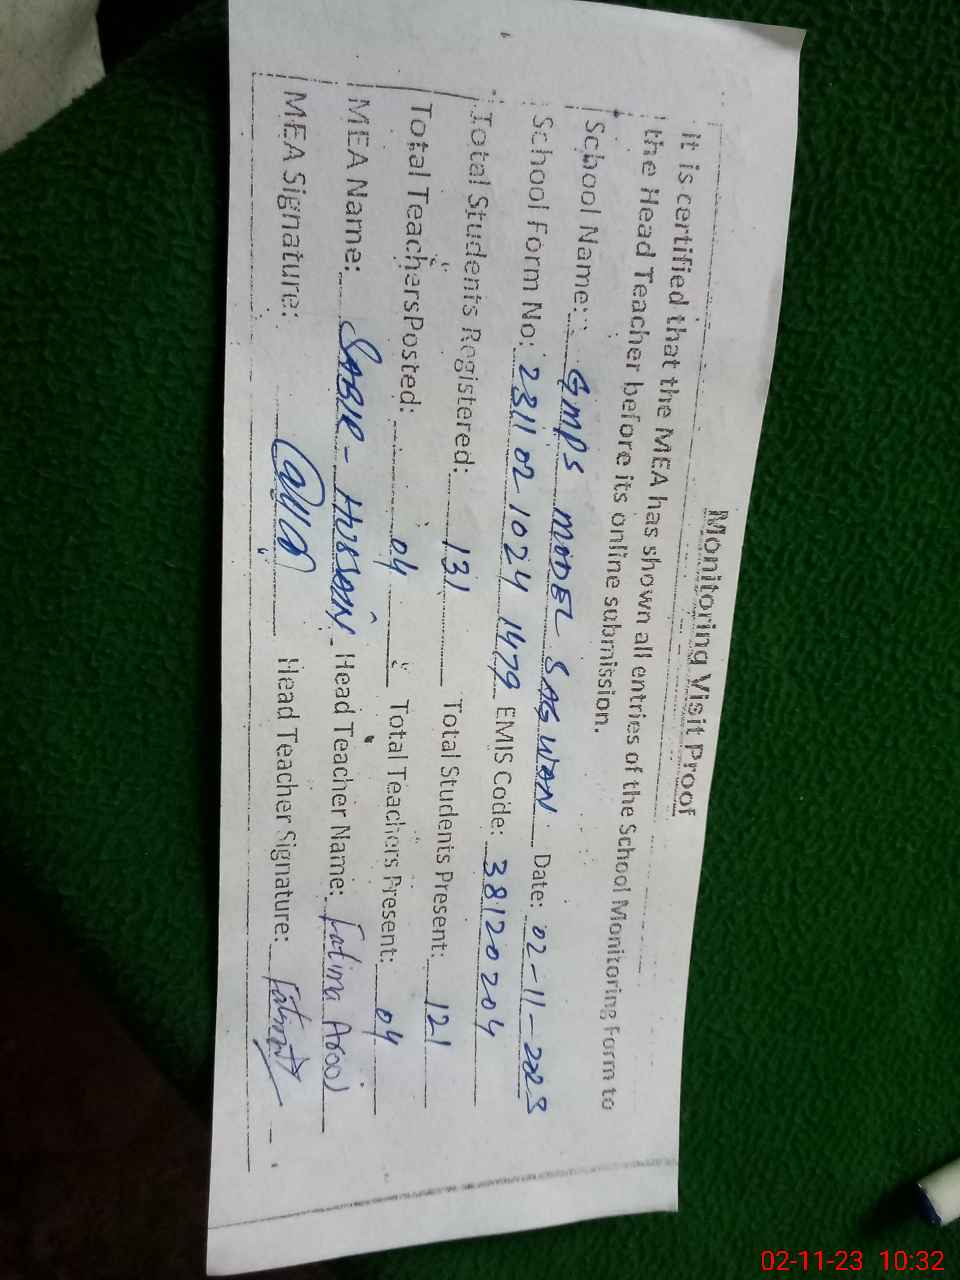 Monitoring Visit Proof
It is certified that the MEA has shown all entries of the School Monitoring Form to
the Head Teacher before its online submission.
School Name: GMPS MODEL SAGWAN Date: 02-11-2023
School Form No: 2311 02 1024 1479 EMIS Code: 38120204
Total Students Registered: 131 Total Students Present: 121
Total Teachers Posted: 04 Total Teachers Present: 04
MEA Name: SABIR-HUSSAIN Head Teacher Name: Fatima
MEA Signature: Head Teacher Signature: Fatima
02-11-23 10:32